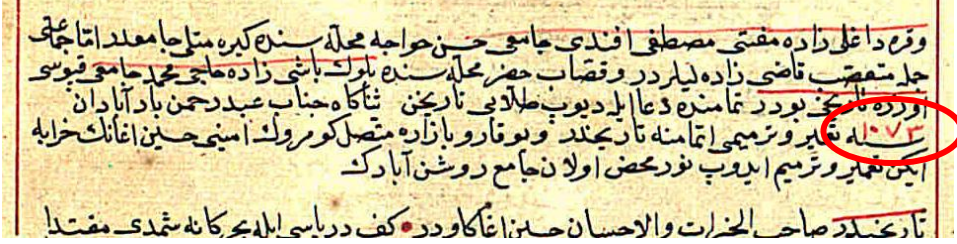 وقره داغلی زاده مفتی مصطفی افندی جامعی حسن خواجه محله سنده کیره متلی جامعدر اما جماعتی
جمله متعصب قاضی زاده لیلردر وقصاب حضر محله سنده بلوک باشی زاده حاجی محمد جامعی قپوسی
اوزره تاریخی بودر تمامنده دعا ایله دیوب طلابی تاریخن ثناکاه جناب عبد رحمن باد آبادان
سنه ۱۰۷۳ تعمیر وترمیمی اتمامنه تاریخدر ویوقارو بازاره متصل کومروک امینی حسین اغانک خرابه
ایکن تعمیر وترمیم ایدوب نور محض اولان جامع روشن آبادک
تاریخیدر صاحب الخیرات والاحسان حسین اغا کاودر کف دریاسی ایله بحر کانه شمدی مقتدا